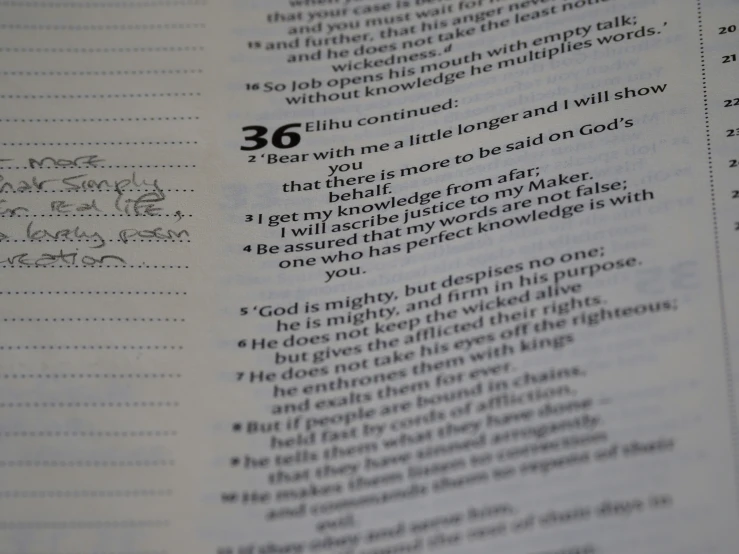 more
Simply
in real life,
a lovely poem
creation.
that your case is
and you must wait for
15 and further, that his anger never
and he does not take the least
wickedness.d
16 So Job opens his mouth with empty talk;
without knowledge he multiplies words.’
36 Elihu continued:
2 ‘Bear with me a little longer and I will show
you
that there is more to be said on God’s
behalf.
3 I get my knowledge from afar;
I will ascribe justice to my Maker.
4 Be assured that my words are not false;
one who has perfect knowledge is with
you.
5 ‘God is mighty, but despises no one;
he is mighty, and firm in his purpose.
6 He does not keep the wicked alive
but gives the afflicted their rights.
7 He does not take his eyes off the righteous;
he enthrones them with kings
and exalts them for ever.
8 But if people are bound in chains,
held fast by cords of affliction,
9 he tells them what they have done –
that they have sinned arrogantly.
10 He makes them listen to correction
and commands them to repent of their
evil.
20
21
22